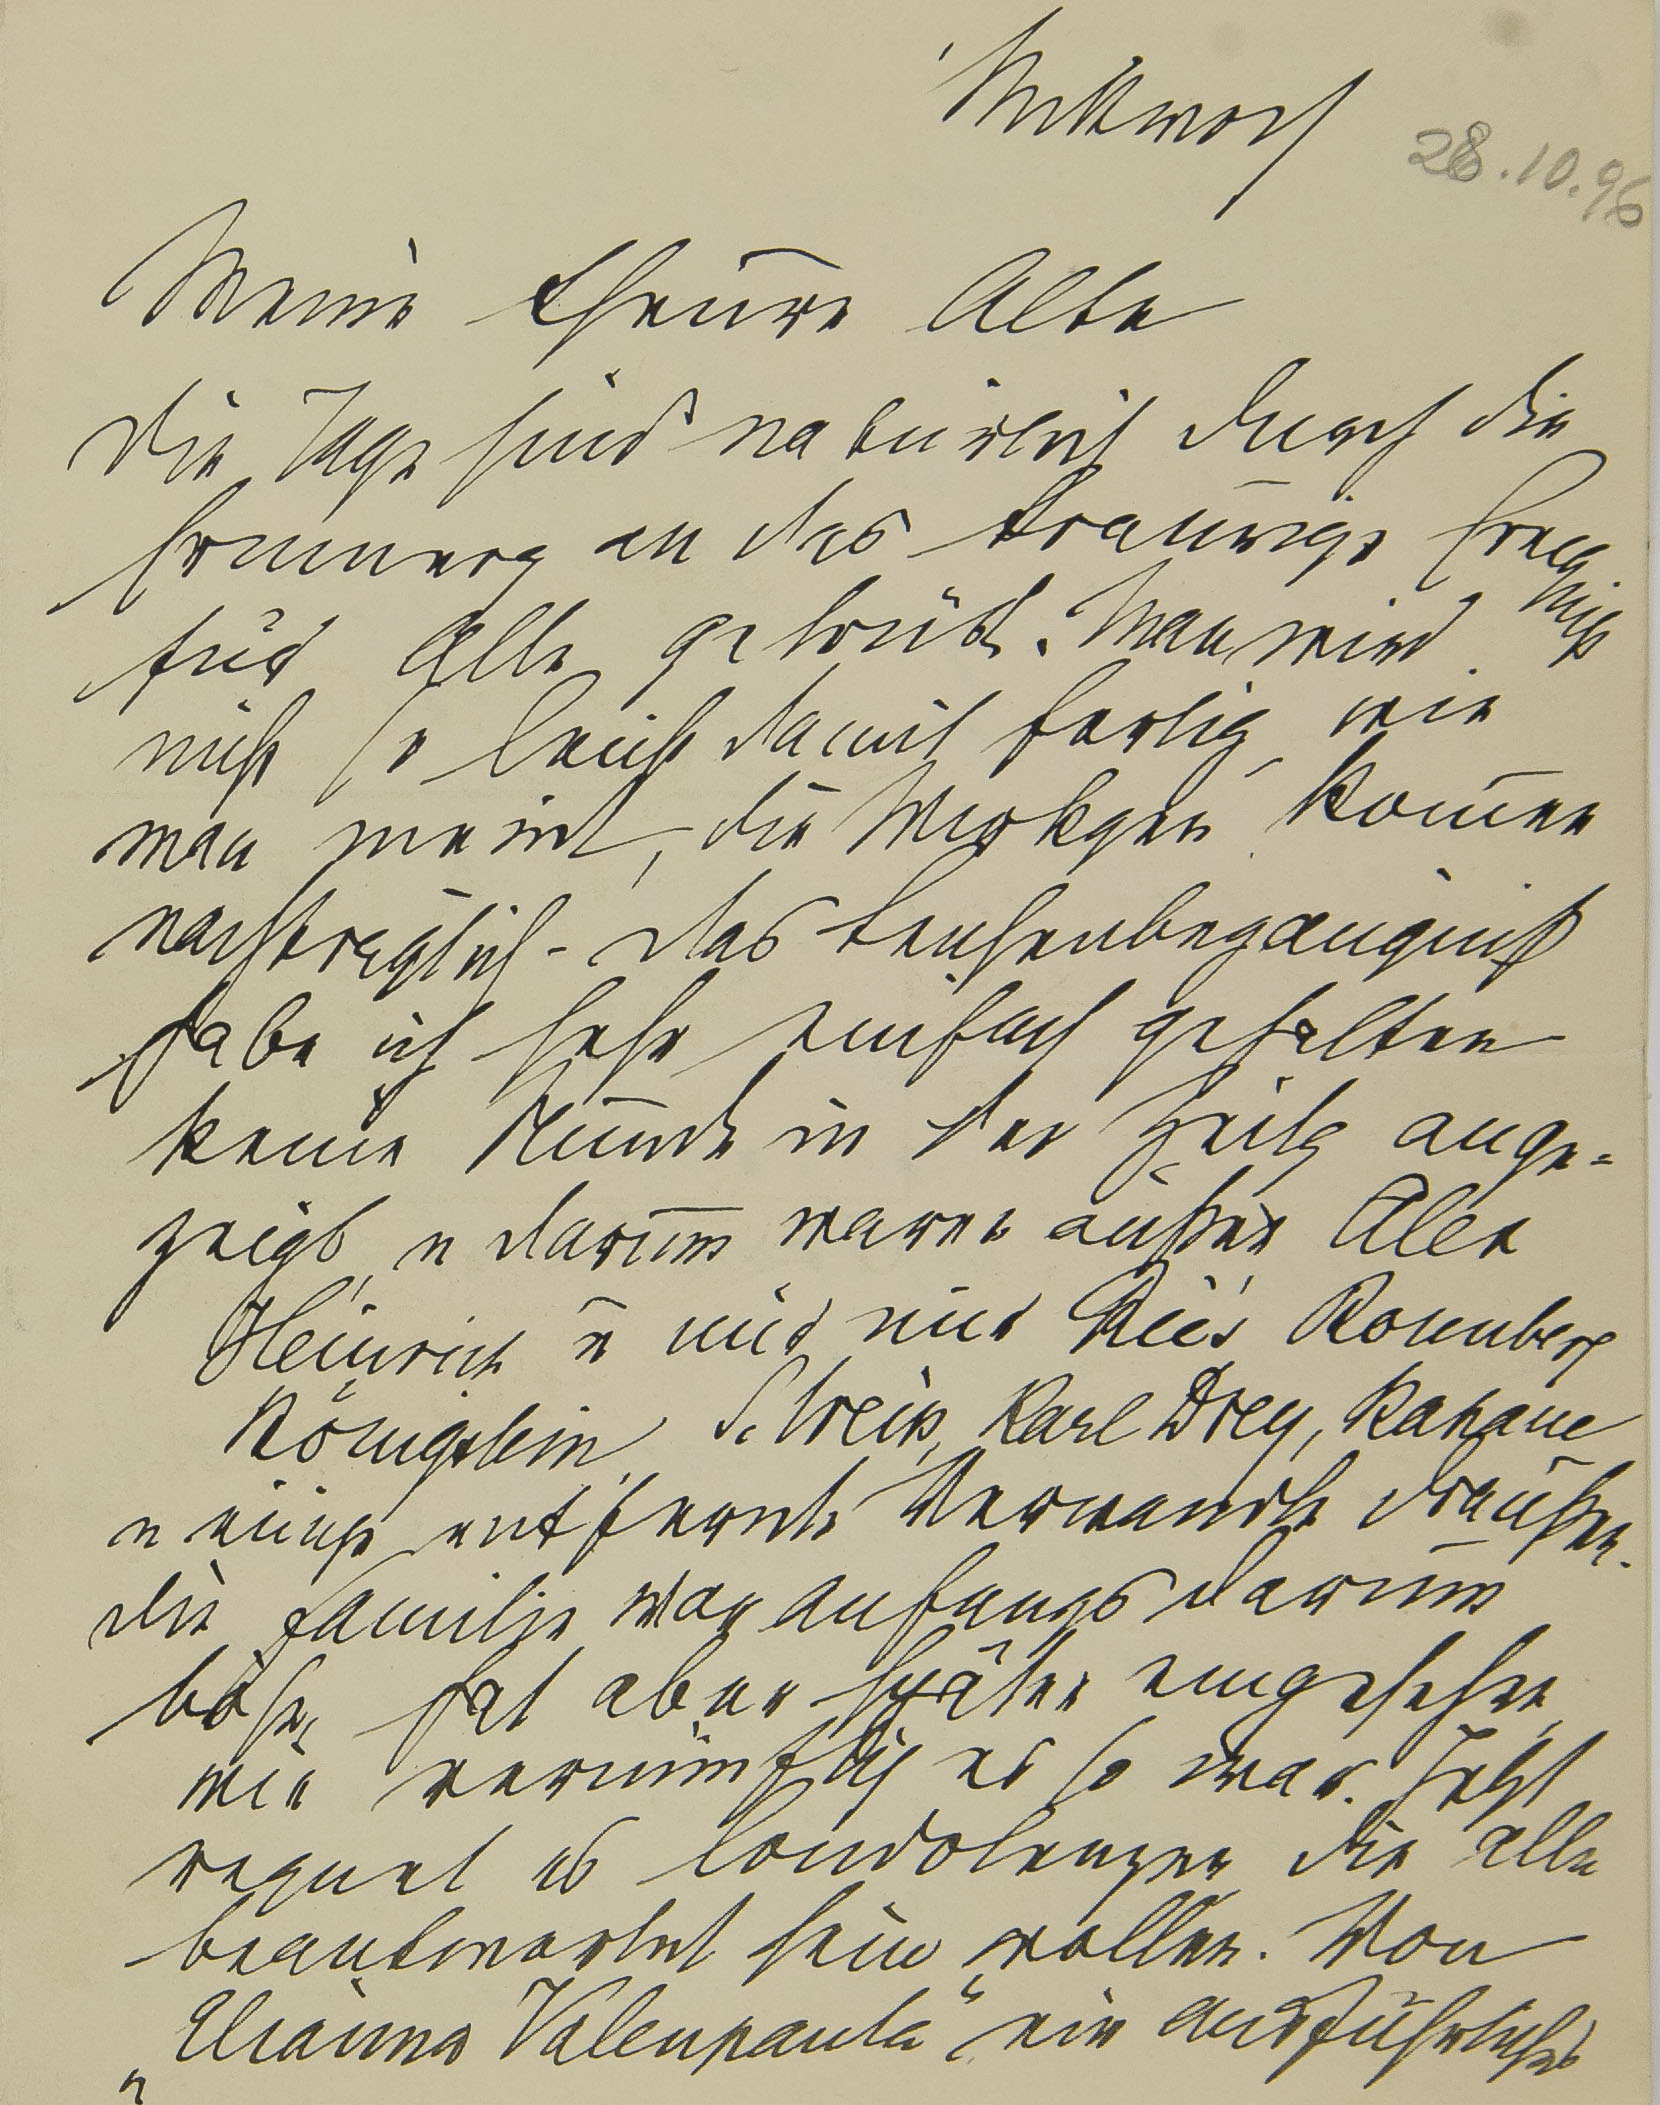 Mittwoch
28.10.96
Meine theure Alte
Die Tage sind natürlich durch die
Erinnerg an das traurige Ereig
niß
für Alle getrübt. Man wird
nicht so leicht damit fertig, wie
man meint, die Wirkgen kom̄en
nachträglich - das Leichenbegängniß
habe ich sehr einfach gehalten
keine Stunde in der Zeitg ange-
zeigt, u darum waren außer Alex
Heinrich u mir nur Rie's Rosenberg
Königstein, Karl Drey,
u einige entfernte Verwandte draußen.
Die Familie war anfangs darum
böse, hat aber später eingesehen,
wie vernünftig es so war. Jetzt
regnet es Condolenzen die alle
beantwortet sein wollen. Von
„ “ ein ausführlicher